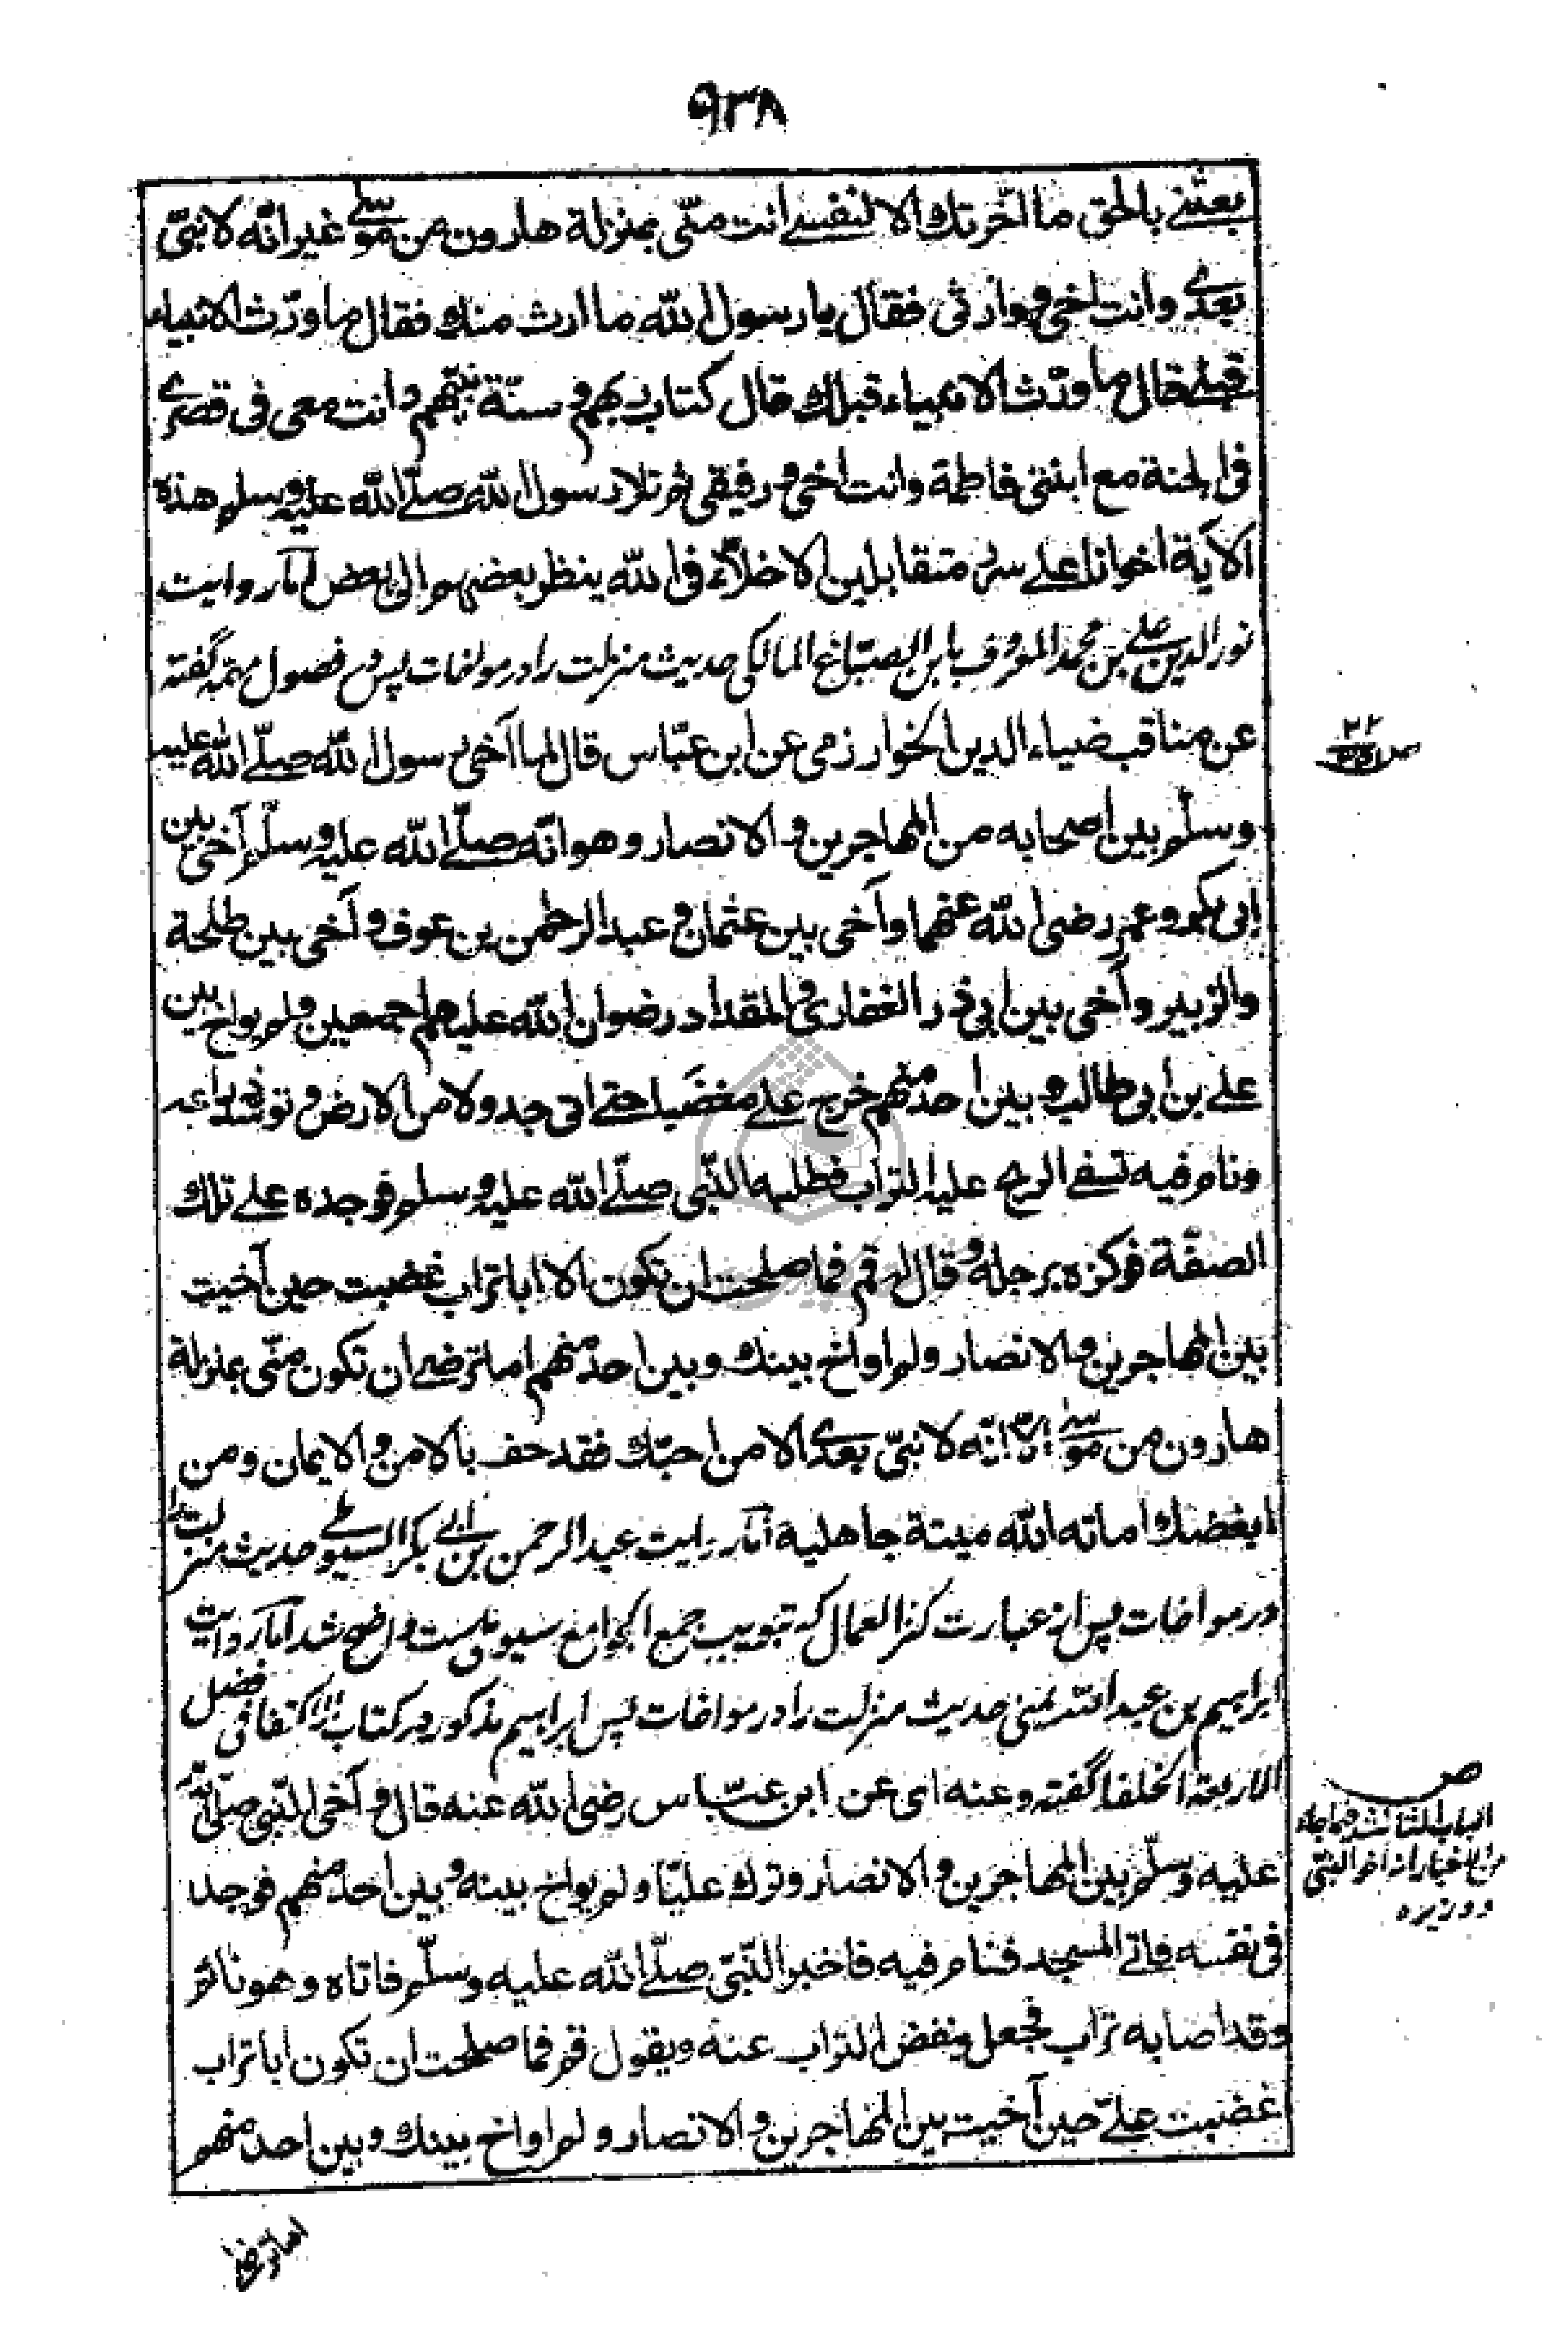 ٩٣٨
بعثنى بالحق ما اخّرتك الا لنفسے انت منّى بمنزلة هارون من موسٰے غير انّه لا نبىّ
بعدے وانت اخى ووارثى فقال يا رسول الله ما ارث منك فقال ما ورّث الانبياء
قبلے قال ما ورّث الانبياء قبلك قال كتاب ربهم وسنّة نبيّهم وانت معى فى قصرے
فى الجنة مع ابنتى فاطمة وانت اخى ورفيقى ثم تلا رسول الله صلّے الله عليه وسلم هذه
الآية اخوانا علے سرر متقابلين الاخلاّء فى الله ينظر بعضهم الى بعض اما روايت
نور الدين علے بن محمد المعروف بابن الصبّاغ المالكى حديث منزلت را در مواخات پس در فصول مهمه گفته
عن مناقب ضياء الدين الخوارزمى عن ابن عبّاس قال لما آخى رسول الله صلّے الله عليه
وسلّم بين اصحابه من المهاجرين والانصار وهو انّه صلّے الله عليه وسلّم آخى بين
ابى بكر وعمر رضى الله عنهما وآخى بين عثمان و عبد الرحمن بن عوف وآخى بين طلحة
والزبير وآخى بين ابى ذر الغفارى والمقداد رضوان الله عليهم اجمعين ولم يواخ بين
علے بن ابى طالب وبين احد منهم خرج علے مغضَبا حتے اتى جدولا من الارض وتوسّد ذراعه
ونام فيه تسفے الريح عليه التراب فطلبه النّبى صلّے الله عليه وسلم فوجده علے تلك
الصفّة فوكزه برجله وقال له قم فما صلحت ان تكون الا ابا تراب غضبت حين آخيت
بين المهاجرين والانصار ولم اواخ بينك وبين احد منهم اما ترضے ان تكون منّى بمنزلة
هارون من موسٰے الّا انّه لا نبىّ بعدى الا من احبّك فقد حف بالامن والايمان ومن
ابغضك اماته الله ميتة جاهلية اما روايت عبد الرحمن بن ابى بكر السيوطے حديث منزلت را
در مواخات پس از عبارت كنز العمال كه تبويب جمع الجوامع سيوطيست واضح شد اما روايت
ابراهيم بن عبد الله يمنى حديث منزلت را در مواخات پس ابراهيم مذكور در كتاب الاكتفا فى فضل
الاربعة الخلفا گفته وعنه اى عن ابن عبّاس رضى الله عنه قال وآخى النّبى صلّى الله
عليه وسلّم بين المهاجرين والانصار وترك عليّا ولم يواخ بينه وبين احد منهم فوجد
فى نفسه فاتے المسجد فنام فيه فاخبر النّبّى صلّے الله عليه وسلّم فاتاه وهو نائم
وقد اصابه تراب فجعل ينفض التراب عنه ويقول قم فما صلحت ان تكون ابا تراب
غضبت علىّ حين آخيت بين المهاجرين والانصار ولم اواخ بينك وبين احد منهم
اما ترضى
٢٢
ص
الباب
من الاخبار انه اخو النبى
ووزيره